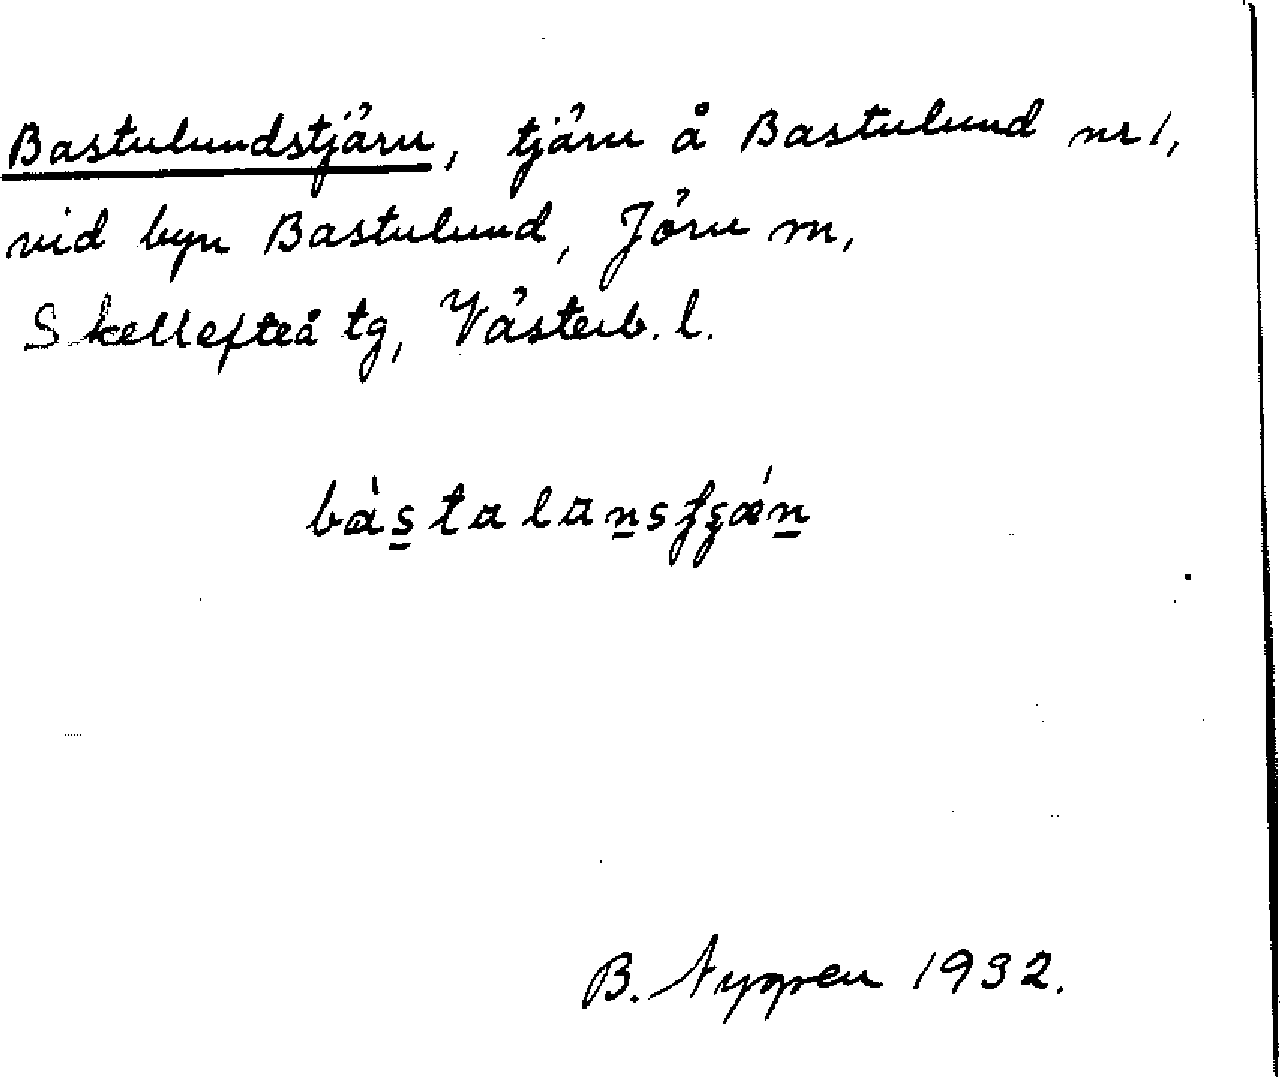 Bastulundstjärn, tjärn å Bastulund nr 1,
vid byn Bastulund, Jörn m,
Skellefteå tg, Västerb. l.
B. Nygren 1932.